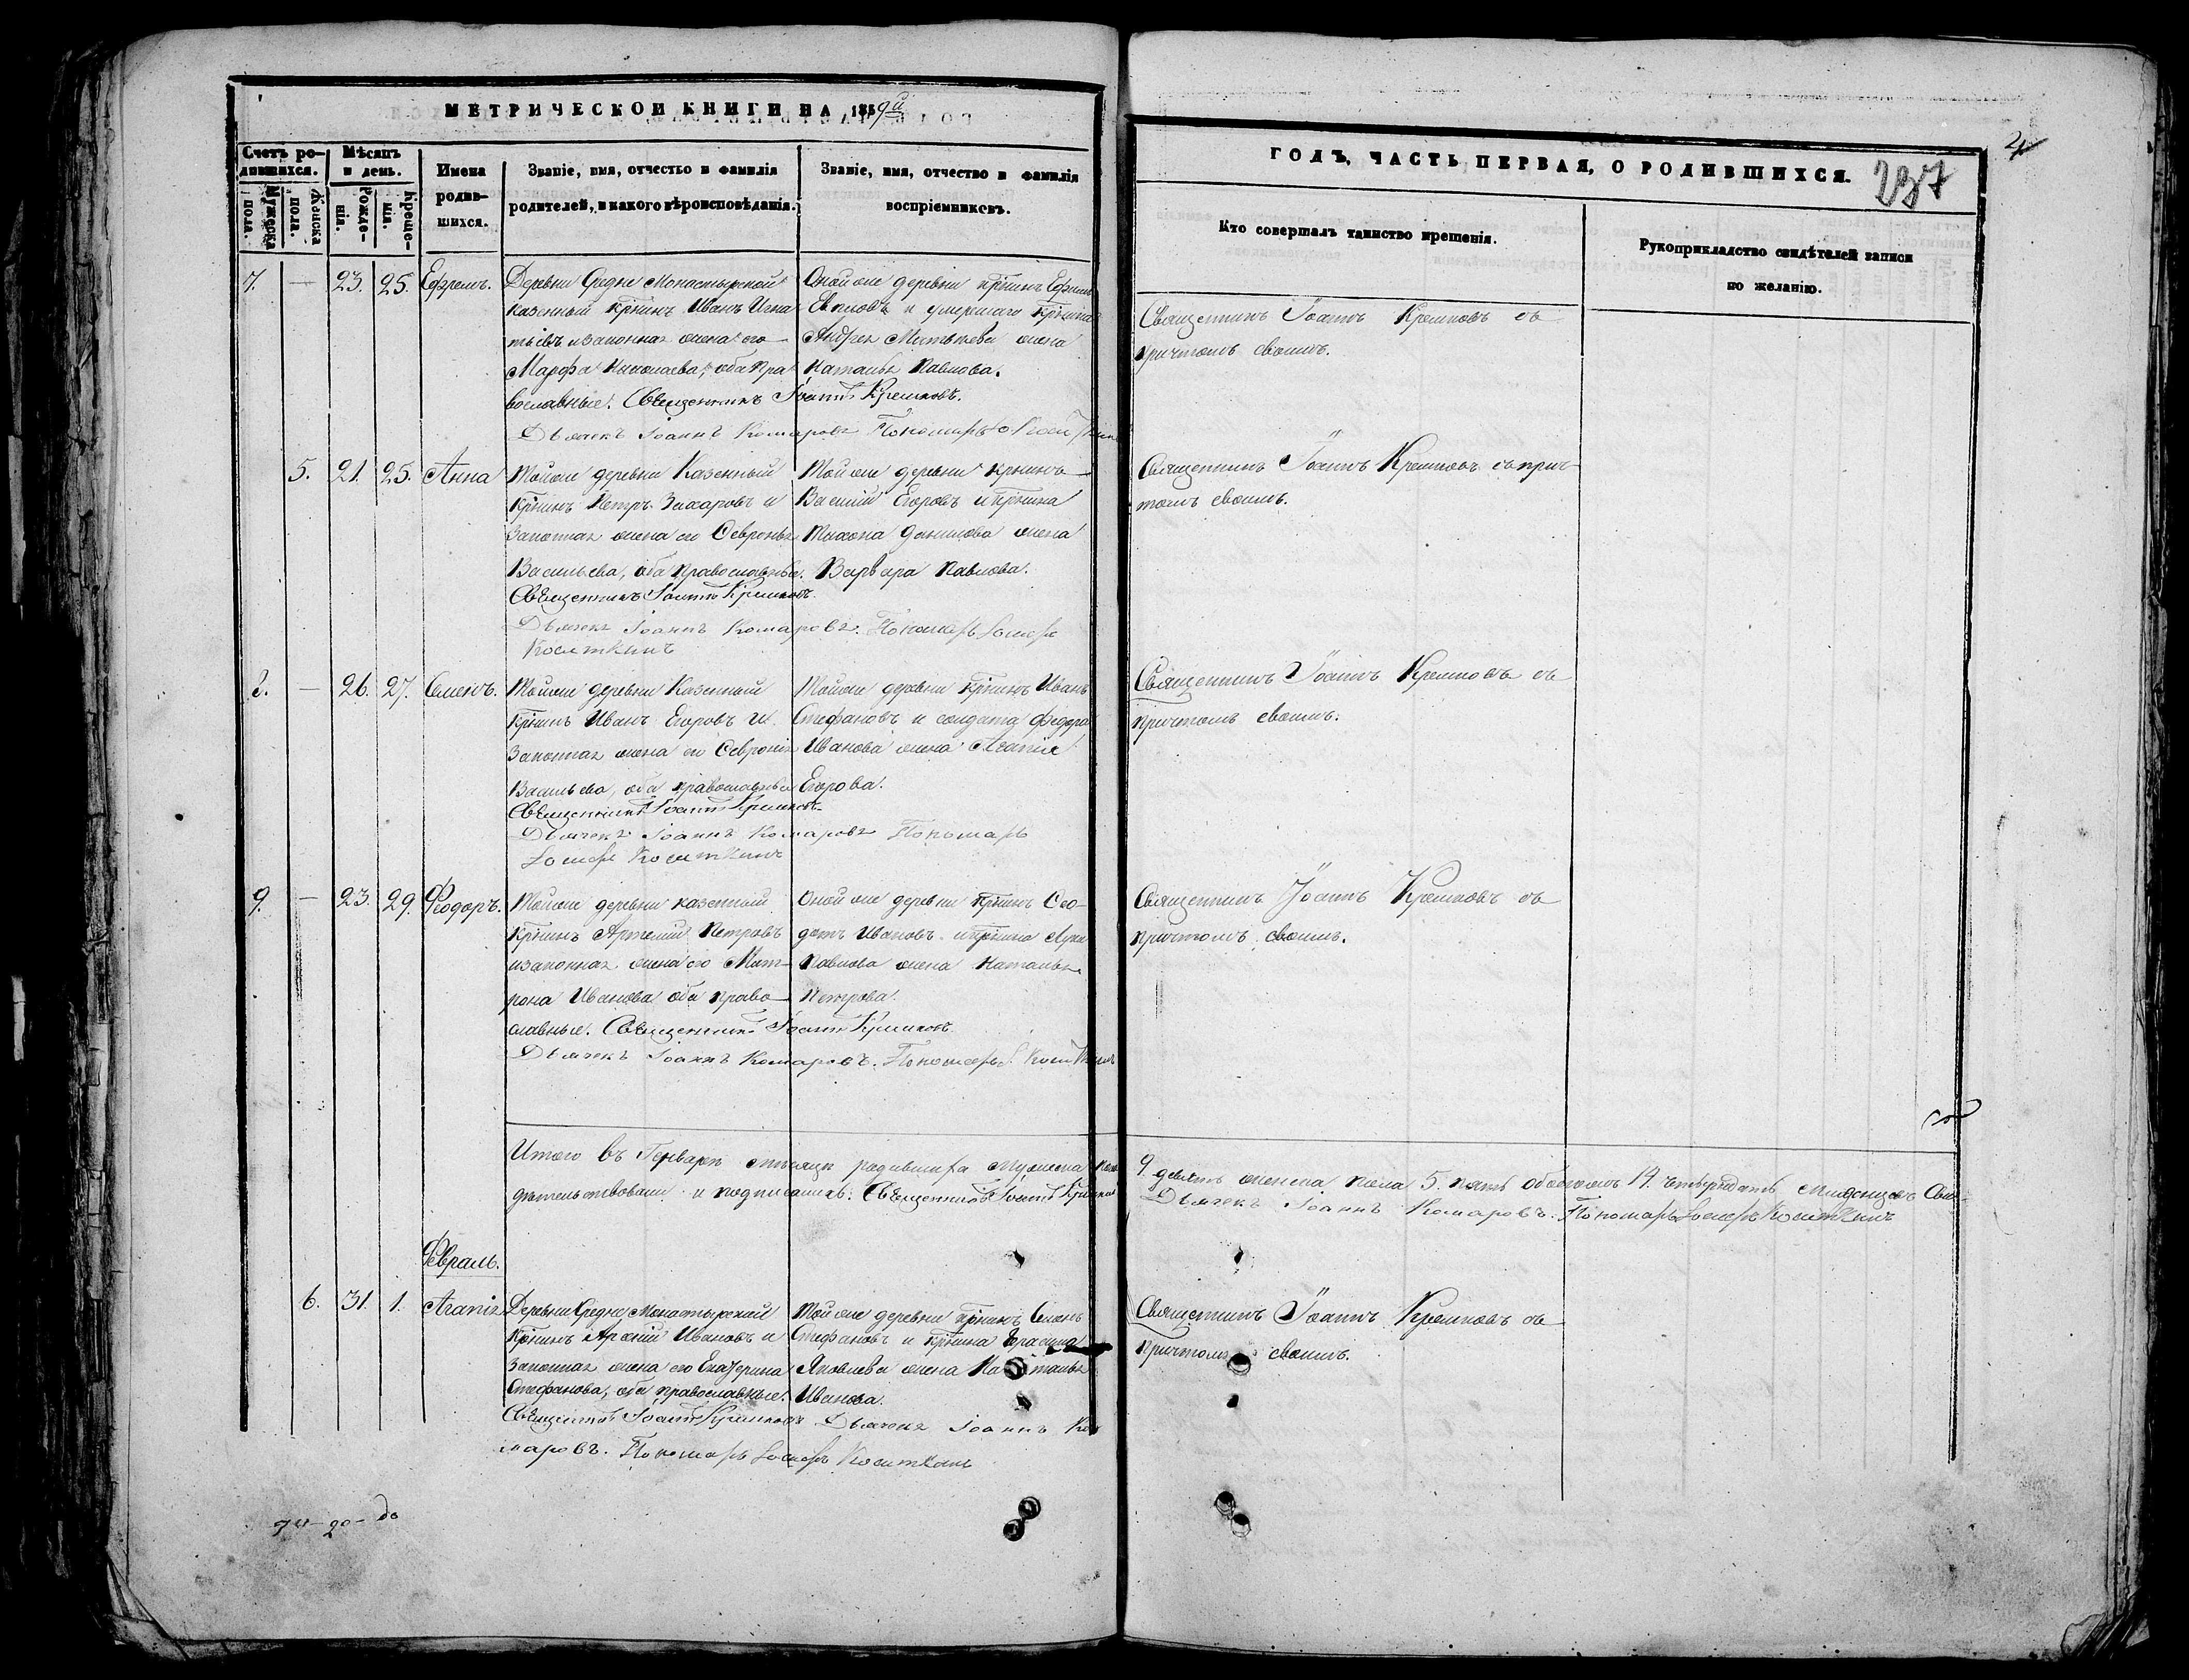 МЕТРИЧЕСКОЙ КНИГИ НА 1859й
Счетъ родившихся.
Мѣсяцъ и день.
Имена родившихся.
Званіе, имя, отчество и фамилія родителей, и какого вѣроисповѣданія.
Званіе, имя, отчество и фамилія воспріемниковъ.
Мужеска пола.
Женска пола.
Рожденія.
Крещенія.
ГОДЪ, ЧАСТЬ ПЕРВАЯ, О РОДИВШИХСЯ.
237
Кто совершалъ таинство крещенія.
Рукоприкладство свидѣтелей записи по желанію.
7. — 23. 25. Ефремъ.
Деревни Средне Монастырской
казенный крнинъ Иванъ Игна
тьевъ и законная жена его
Марфа Николаева, оба пра
вославные. Священникъ Іоаннъ Кремковъ.
Дьячекъ Іоаннъ Комаровъ Пономарь
Оной же деревни крнинъ
и умершаго крнина
Андрея Матвѣева жена
Наталья Павлова.
Священникъ Іоаннъ Кремковъ съ
причтомъ своимъ.
5. 21. 25. Анна
Тойже деревни Казенный
крнинъ Петръ Захаровъ и
Законная жена его Февронья
Васильева, оба православные.
Священникъ Іоаннъ Кремковъ.
Дьячекъ Іоаннъ Комаровъ. Пономарь Іосифъ
Коситкинъ
Тойже деревни крнинъ
Василій Егоровъ и крнина
Тихона Данилова жена
Варвара Павлова.
Священникъ Іоаннъ Кремковъ съ прич
томъ своимъ.
8. — 26. 27. Семенъ.
Тойже деревни Казенный
крнинъ Иванъ Егоровъ и
Законная жена его Февронія
Васильева, оба православные
Священникъ Іоаннъ Кремковъ.
Дьячекъ Іоаннъ Комаровъ Пономарь
Іосифъ Коситкинъ
Тойже деревни крнинъ Иванъ
Стефановъ и солдата Федора
Иванова жена Агапія
Егорова.
Священникъ Іоаннъ Кремковъ съ
причтомъ своимъ.
9. — 23. 29. Феодоръ.
Тойже деревни казенный
крнинъ Артемій Петровъ
и законная жена его Мат
рона Иванова оба право
славные. Священникъ Іоаннъ Кремковъ.
Дьячекъ Іоаннъ Комаровъ. Пономарь
Оной же деревни крнинъ Фео
дотъ Ивановъ и крнина Луки
Павлова жена Наталья
Петрова.
Священникъ Іоаннъ Кремковъ съ
причтомъ своимъ.
Итого въ Генварѣ мѣсяцѣ родившихся Мужеска пола 9. девять женска пола 5. пять обоего 14. четырнадцать младенцевъ Сви
дѣтельствовали и подписались: Священникъ Іоаннъ Кремковъ Дьячекъ Іоаннъ Комаровъ. Пономарь Іосифъ Коситкинъ
Февраль.
6. 31. 1. Агапія
Деревни Средне Монастырской
крнинъ Ивановъ и
Законная жена его Екатерина
Стефанова, оба православные.
Священникъ Іоаннъ Кремковъ Дьячекъ Іоаннъ Ко
маровъ. Пономарь Іосифъ Коситкинъ
Той же деревни крнинъ Семенъ
Стефановъ и крнина Герасима
Яковлева жена Наталья
Иванова.
Священникъ Іоаннъ Кремковъ съ
причтомъ своимъ.